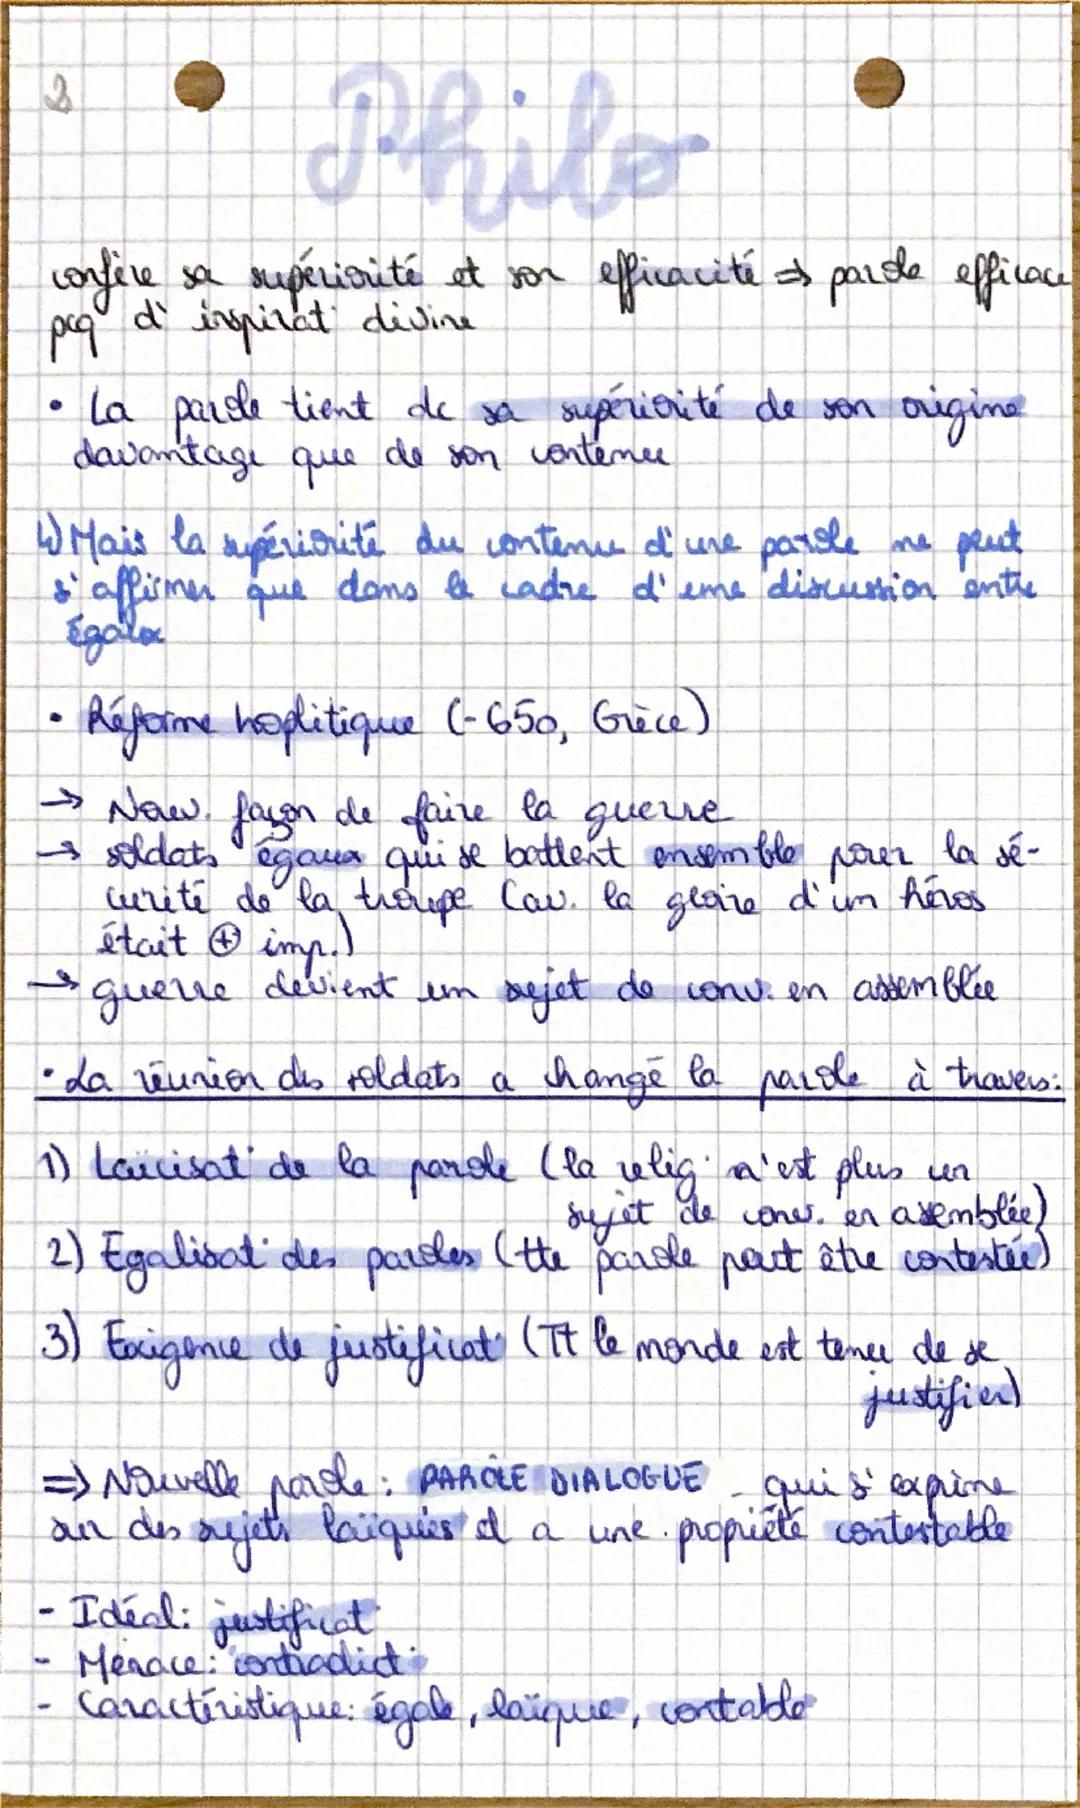 2
Philo
confère sa supériorité et son efficacité => parole efficace
pcq d'inspirat° divine
• La parole tient dc sa supériorité de son origine
davantage que de son contenu
↳ Mais la supériorité du contenu d'une parole ne peut
s'affirmer que dans le cadre d'une discussion entre
Égaux
• Réforme hoplitique (-650, Grèce)
→ Nouv. façon de faire la guerre
→ soldats égaux qui se battent ensemble pour la sé-
curité de la troupe (av. la gloire d'un héros
était ⊕ imp.)
→ guerre devient un sujet de conv. en assemblée
• La réunion des soldats a changé la parole à travers:
1) Laïcisat° de la parole (la relig° n'est plus un
sujet de conv. en asemblée)
2) Egalisat° des paroles (tte parole peut être contestée)
3) Exigence de justificat° (Tt le monde est tenu de se
justifier)
=> Nouvelle parole : PAROLE DIALOGUE qui s'exprime
sur des sujets laïques et a une propriété contestable
- Idéal: justificat°
- Menace: contradict°
- Caractéristique: égale, laïque, contable